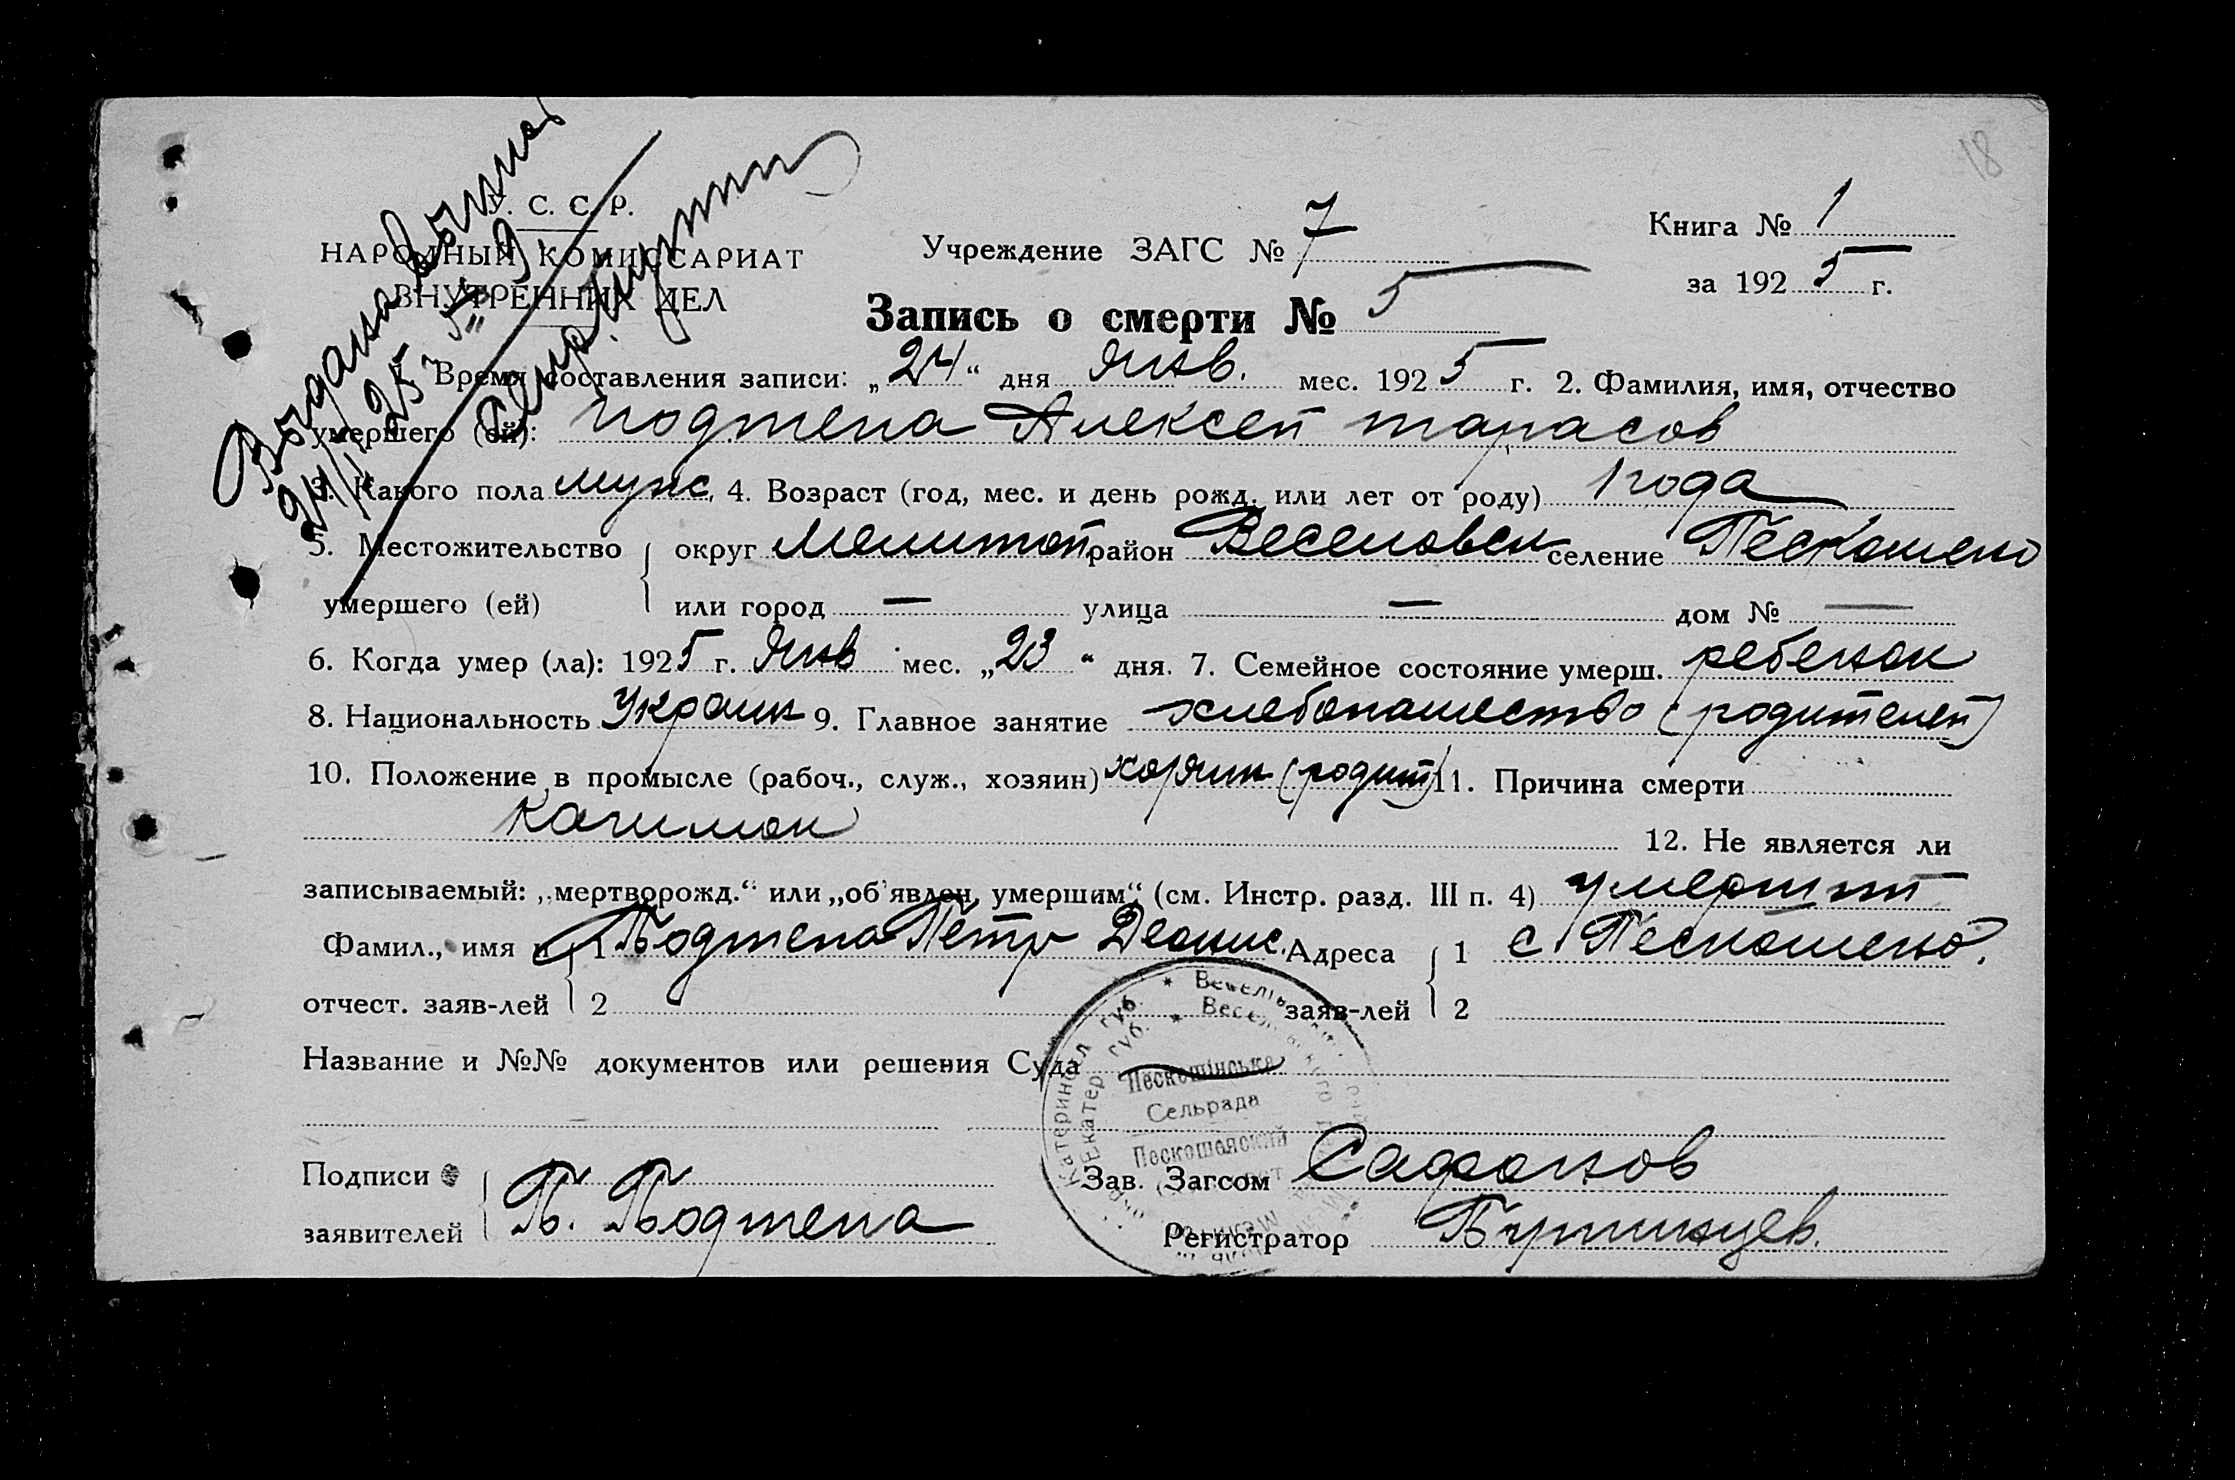 18
У. С. С. Р.
НАРОДНЫЙ КОМИССАРИАТ
ВНУТРЕННИХ ДЕЛ
Выдана выпись
24/I 25 г. № 9
Учреждение ЗАГС № 7
Книга № 1
за 1925 г.
Запись о смерти № 5
1. Время составления записи: „24“ дня Янв. мес. 1925 г. 2. Фамилия, имя, отчество
умершего (ей): Подтепа Алексей Тарасов
3. Какого пола мужс. 4. Возраст (год, мес. и день рожд. или лет от роду) 1 года
5. Местожительство округ Мелитоп район Веселовск селение Пескошено
умершего (ей) или город — улица — дом № —
6. Когда умер (ла): 1925 г. Янв мес. „23“ дня. 7. Семейное состояние умерш. ребенок
8. Национальность Украин 9. Главное занятие хлебопашество (родителей)
10. Положение в промысле (рабоч., служ., хозяин) хозяин (родит) 11. Причина смерти
12. Не является ли
записываемый: „мертворожд.“ или „об'явлен. умершим“ (см. Инстр. разд. III п. 4) умерший
Фамил., имя и 1 Подтепа Петр Денис. Адреса 1 с Пескошено.
отчест. заяв-лей 2 заяв-лей 2
Название и №№ документов или решения Суда
Пескошинська
Сельрада
Пескошанский
Подписи
заявителей П. Подтепа
Зав. Загсом Сафонов
Регистратор